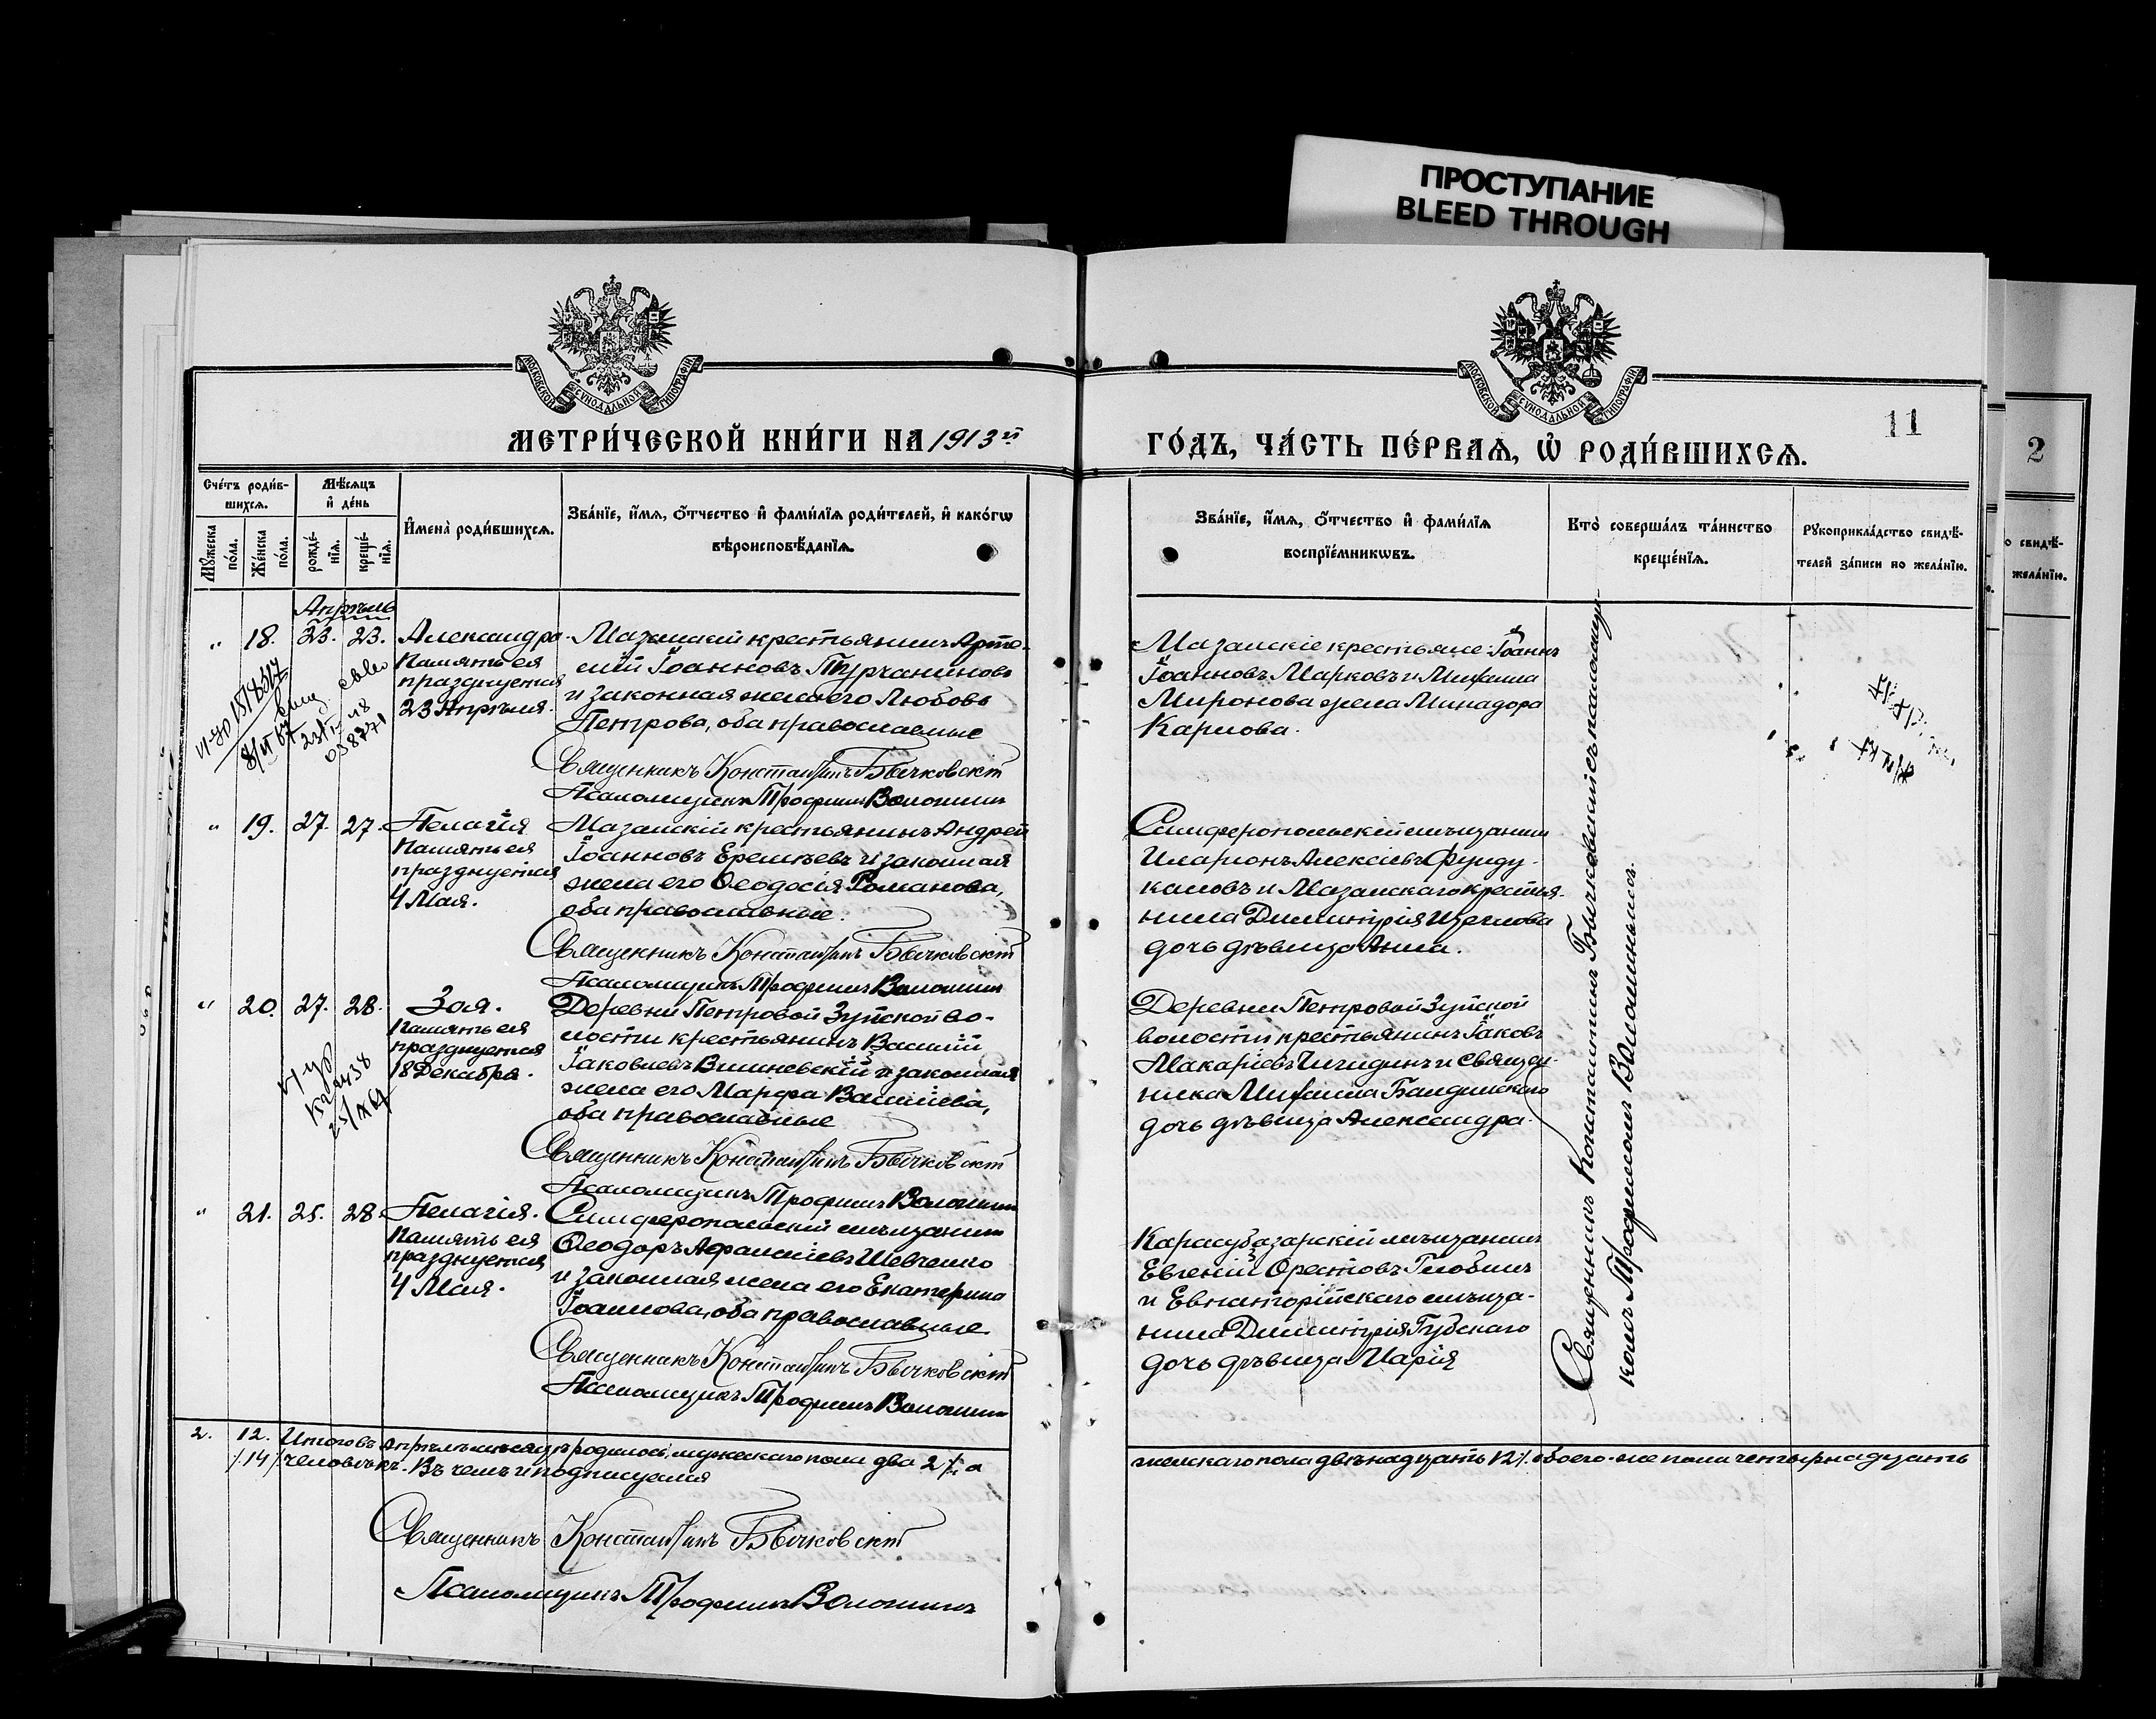 ПРОСТУПАНИЕ
BLEED THROUGH
МОСКОВСКОЙ СѴНОДАЛЬНОЙ ТИПОГРАФІИ
МОСКОВСКОЙ СѴНОДАЛЬНОЙ ТИПОГРАФІИ
МЕТРИ́ЧЕСКОЙ КНИ́ГИ НА 1913й
ГО́ДЪ, ЧА́СТЬ ПЕ́РВАѦ, Ѡ҆ РОДИ́ВШИХСѦ.
11
2
Сче́тъ роди́в-
шихсѧ.
Мѣ́сѧцъ
и҆ де́нь
Мꙋ́жеска
по́ла.
Же́нска
по́ла.
рожде́-
нїѧ.
креще́-
нїѧ.
И҆мена̀ роди́вшихсѧ.
Зва́нїе, и҆́мѧ, ѻ҆́тчество и҆ фами́лїѧ роди́телей, и҆ како́гѡ
вѣроисповѣ́данїѧ.
Зва́нїе, и҆́мѧ, ѻ҆́тчество и҆ фами́лїѧ
воспрїе́мникѡвъ.
Кто̀ соверша́лъ та́инство
креще́нїѧ.
Рꙋкоприкла́дство свидѣ́-
телей за́писи по жела́нїю.
о свидѣ́-
жела́нїю.
Апрѣль
" 18. 23. 23. Александра.
Память ея
празднуется
23 Апрѣля.
Мазанскій крестьянинъ Арте-
мій Іоанновъ Турчаниновъ
и законная жена его Любовь
Петрова, оба православные
Священникъ Константинъ Бычковскій
Псаломщикъ Трофимъ Волошинъ
Мазанскіе крестьяне: Іоаннъ
Іоанновъ Марковъ и Михаила
Миронова жена Минадора
Карпова.
" 19. 27. 27. Пелагія
Память ея
празднуется
4 Мая.
Мазанскій крестьянинъ Андрей
Іоанновъ Еремѣевъ и законная
жена его Ѳеодосія Романова,
оба православные.
Священникъ Константинъ Бычковскій
Псаломщикъ Трофимъ Волошинъ
Симферопольскій мѣщанинъ
Иларіонъ Алексіевъ Фунду-
каловъ и Мазанскаго крестья-
нина Димитрія
дочь дѣвица Анна.
" 20. 27. 28. Зоя.
Память ея
празднуется
18 Декабря.
Деревни Петровой Зуйской во-
лости крестьянинъ Василій
Іаковлевъ Вишневскій и законная
жена его Марфа Василіева,
оба православные
Священникъ Константинъ Бычковскій
Псаломщикъ Трофимъ Волошинъ
Деревни Петровой Зуйской
волости крестьянинъ Іаковъ
Макаріевъ и Священ-
ника Михаила
дочь дѣвица Александра.
" 21. 25. 28. Пелагія.
Память ея
празднуется
4 Мая.
Симферопольскій мѣщанинъ
Ѳеодоръ Аѳанасіевъ Шевченко
и законная жена его Екатерина
Іоаннова, оба православные.
Священникъ Константинъ Бычковскій
Псаломщикъ Трофимъ Волошинъ
Карасубазарскій мѣщанинъ
Евгеній Орестовъ
и Евпаторійскаго мѣща-
нина Димитрія Губскаго
дочь дѣвица Марія
Священникъ Константинъ Бычковскій съ псаломщи-
комъ Трофимомъ Волошинымъ.
2. 12. Итого въ Апрѣлѣ мѣсяцѣ родилось, мужескаго пола два 2 /. а
женскаго пола двѣнадцать 12 /. обоего-же пола четырнадцать
/.14/. человѣкъ. Въ чемъ и подписуемся
Священникъ Константинъ Бычковскій
Псаломщикъ Трофимъ Волошинъ